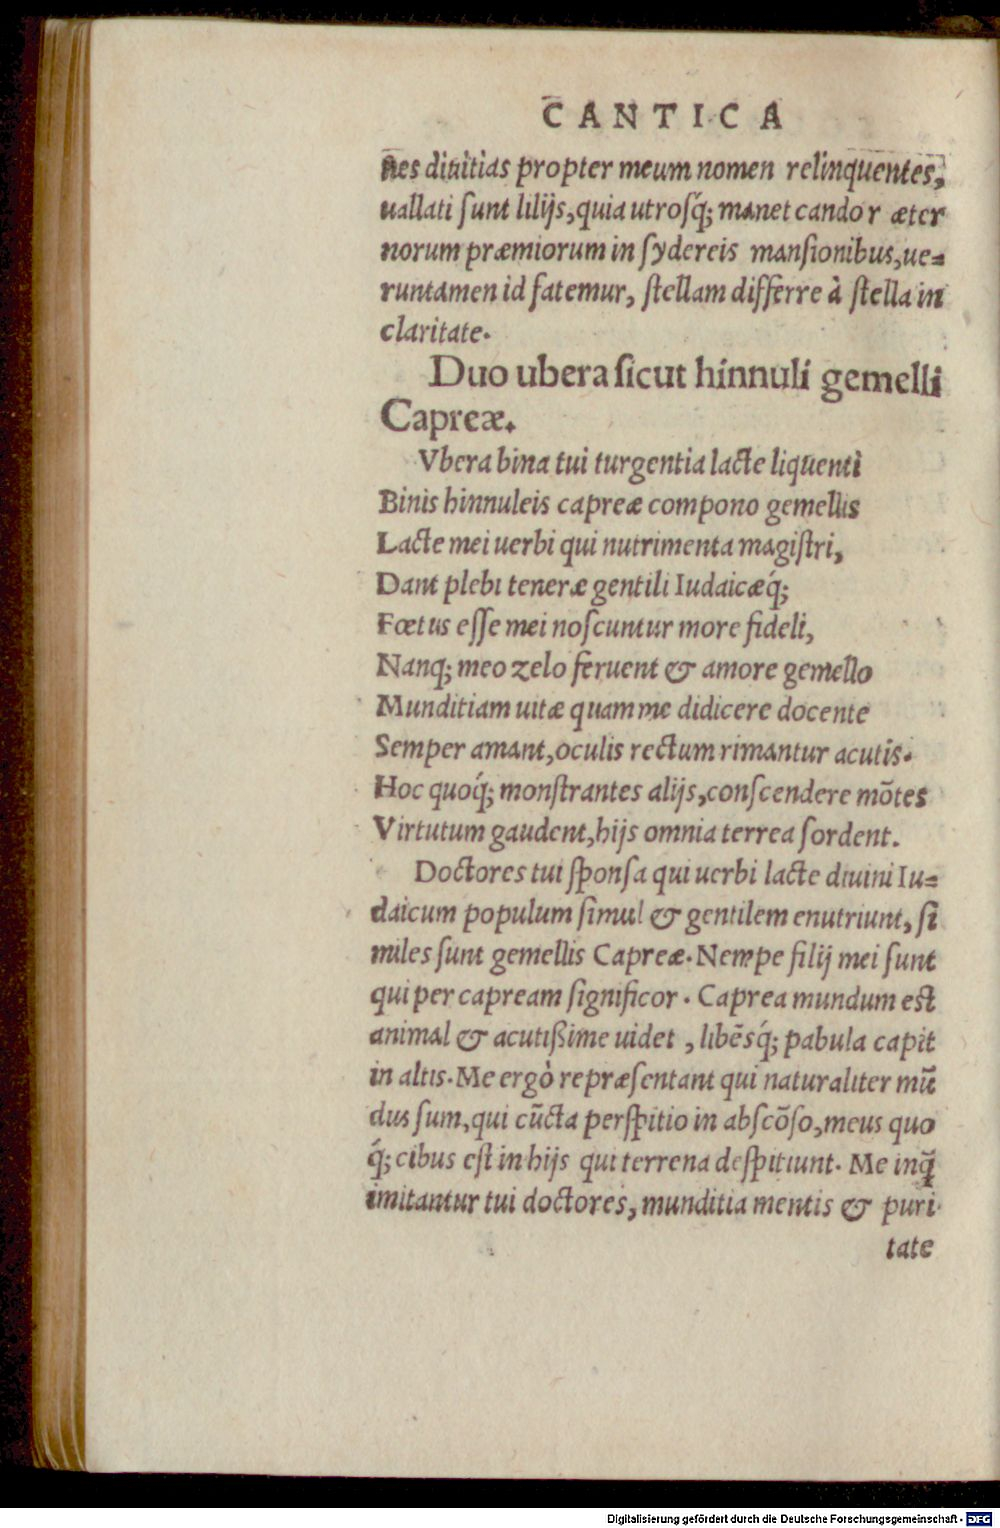 CANTICA
nes diuitias propter meum nomen relinquentes,
uallati sunt lilijs, quia utrosq́; manet candor æter
norum præmiorum in sydereis mansionibus, ue=
runtamen id fatemur, stellam differre à stella in
claritate.
Duo ubera sicut hinnuli gemelli
Capreæ.
Vbera bina tui turgentia lacte liquenti
Binis hinnuleis capreæ compono gemellis
Lacte mei uerbi qui nutrimenta magistri,
Dant plebi teneræ gentili Iudaicæq́;
Fœtus esse mei noscuntur more fideli,
Nanq; meo zelo feruent & amore gemello
Munditiam uitæ quam me didicere docente
Semper amant, oculis rectum rimantur acutis.
Hoc quoq́; monstrantes alijs, conscendere mõtes
Virtutum gaudent, hijs omnia terrea sordent.
Doctores tui sponsa qui uerbi lacte diuini Iu=
daicum populum simul & gentilem enutriunt, si
miles sunt gemellis Capreæ. Nempe filij mei sunt
qui per capream significor. Caprea mundum est
animal & acutißime uidet, libẽsq́; pabula capit
in altis. Me ergò repræsentant qui naturaliter mũ
dus sum, qui cũcta perspitio in abscõso, meus quo
q́; cibus est in hijs qui terrena despitiunt. Me inq̃
imitantur tui doctores, munditia mentis & puri
tate
Digitalisierung gefördert durch die Deutsche Forschungsgemeinschaft - DFG